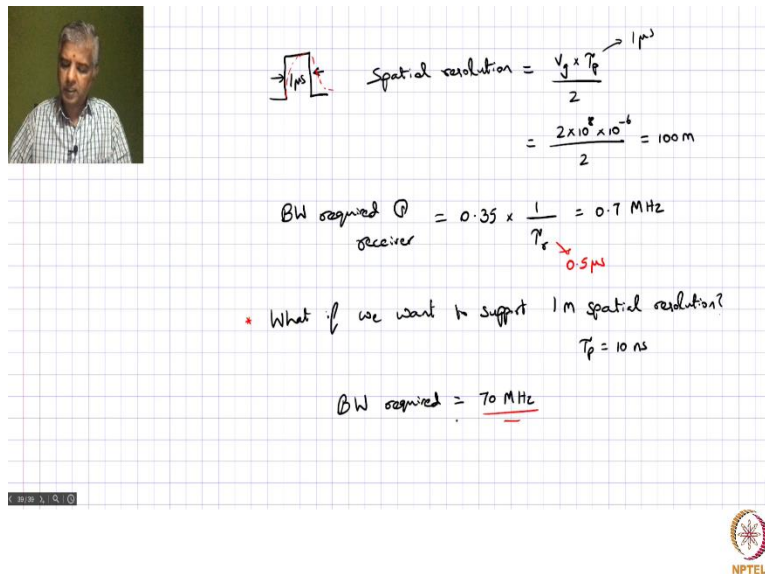 1 μs
1μs
Spatial resolution = Vg × τp / 2
= 2×10⁸ × 10⁻⁶ / 2 = 100 m
BW required @ receiver = 0.35 × 1/τr = 0.7 MHz
0.5 μs
* What if we want to support 1 m spatial resolution?
τp = 10 ns
BW required = 70 MHz
39/39
NPTEL